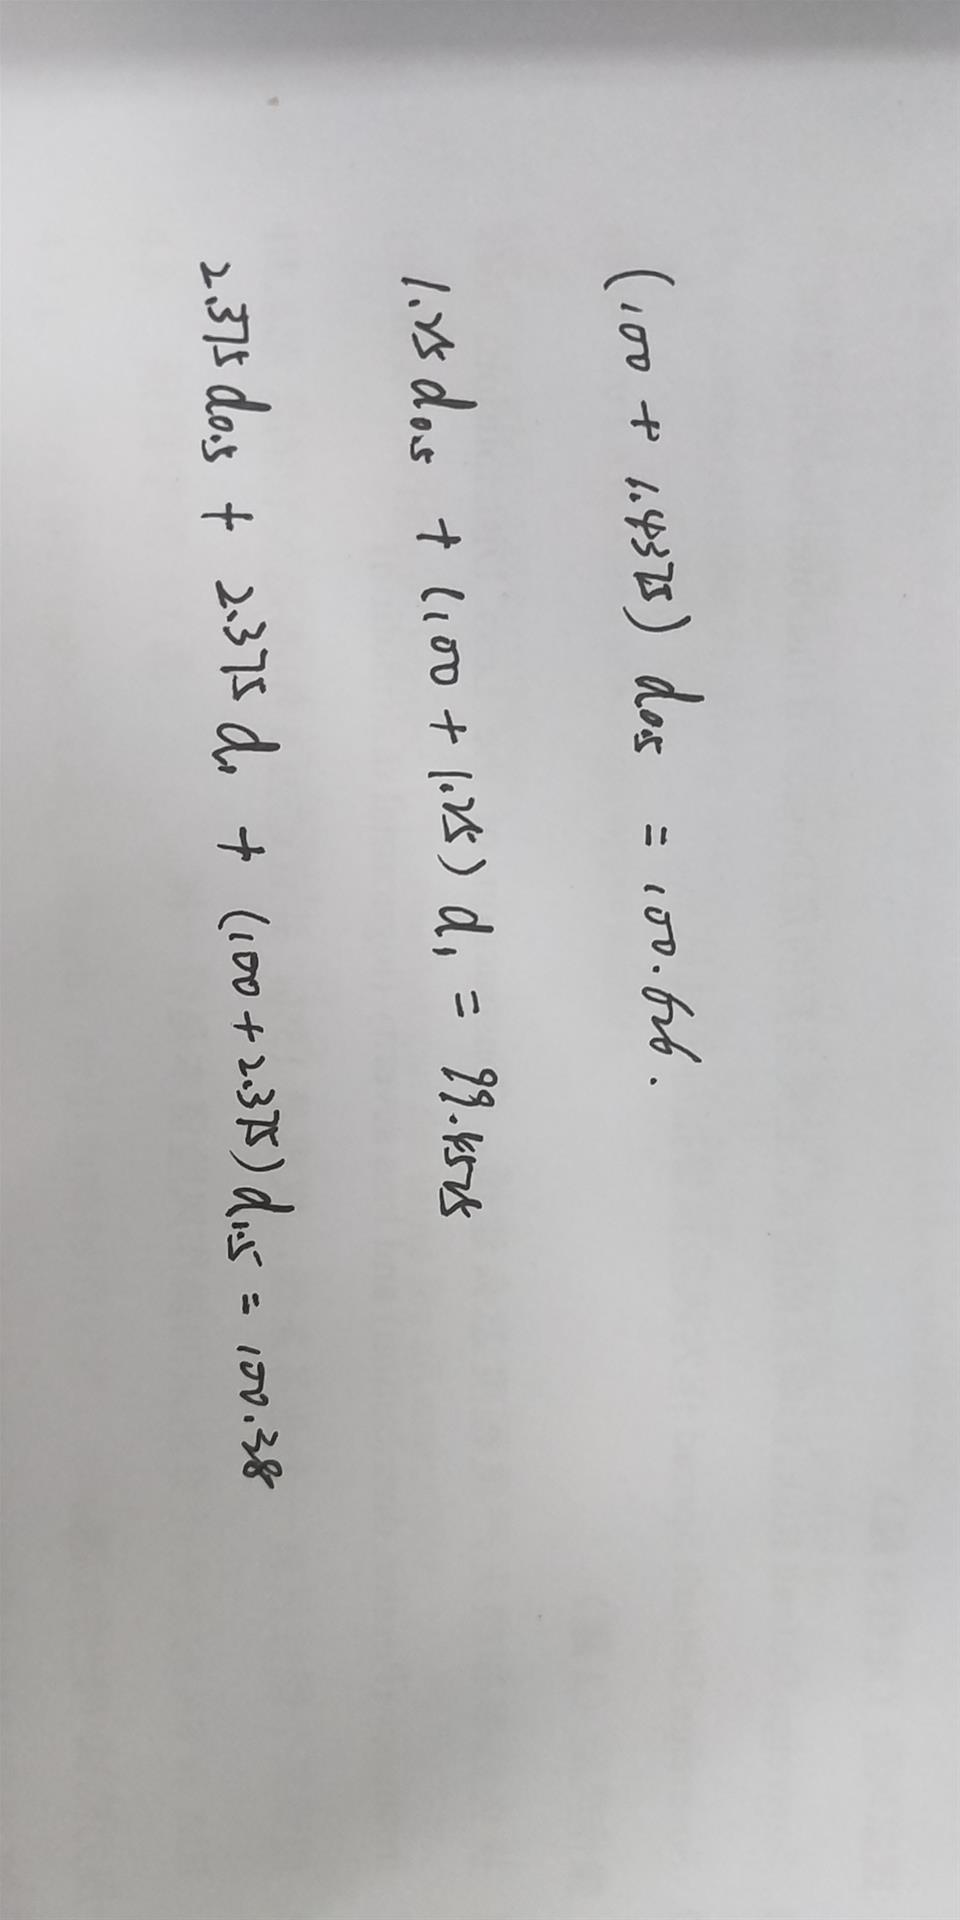 (100 + 1.4375) d0.5 = 100.626.
1.25 d0.5 + (100 + 1.25) d1 = 99.4525
2.375 d0.5 + 2.375 d1 + (100 + 2.375) d1.5 = 100.38